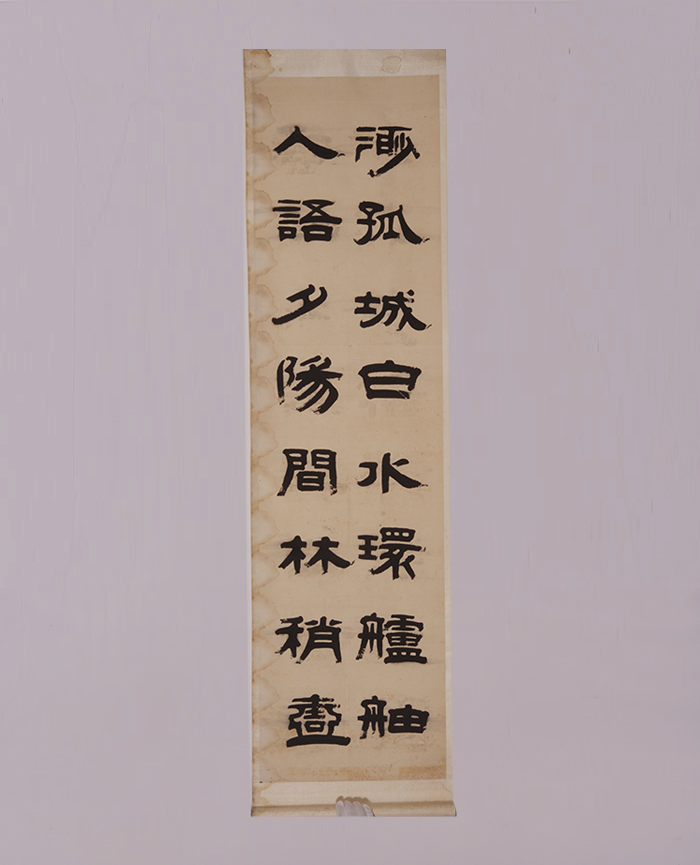 渺孤城白水環艫舳
人語夕陽間林稍